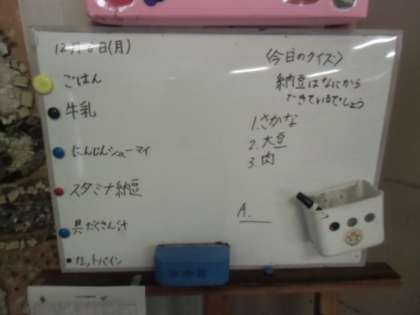 12月 日(月)
ごはん
牛乳
にんじんシューマイ
スタミナ納豆
具だくさん汁
カットパイン
〈今日のクイズ〉
納豆はなにから
できているでしょう
1.さかな
2.大豆
3.肉
A.